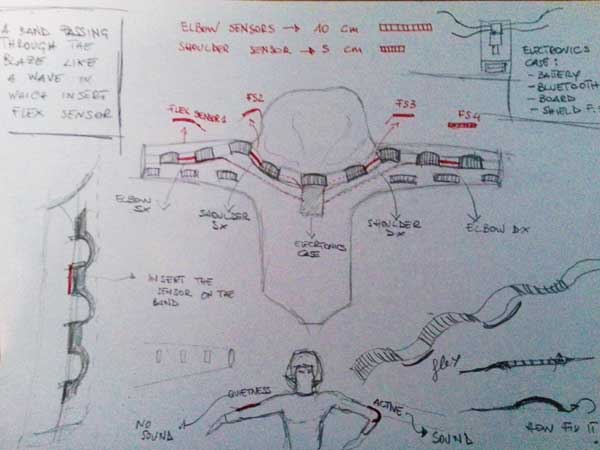 A BAND PASSING
THROUGH THE
BLAZE LIKE
A WAVE IN
WHICH INSERT
FLEX SENSOR
ELBOW SENSORS → 10 cm
SHOULDER SENSOR → 5 cm
ELECTRONICS
CASE:
- BATTERY
- BLUETOOTH
- BOARD
- SHIELD F.S
FLEX SENSOR 1
FS2
FS3
FS4
ELBOW
SX
SHOULDER
SX
ELECTRONICS
CASE
SHOULDER
DX
ELBOW DX
INSERT THE
SENSOR ON THE
BAND
flex
QUIETNESS
ACTIVE
NO
SOUND
SOUND
HOW FIX IT